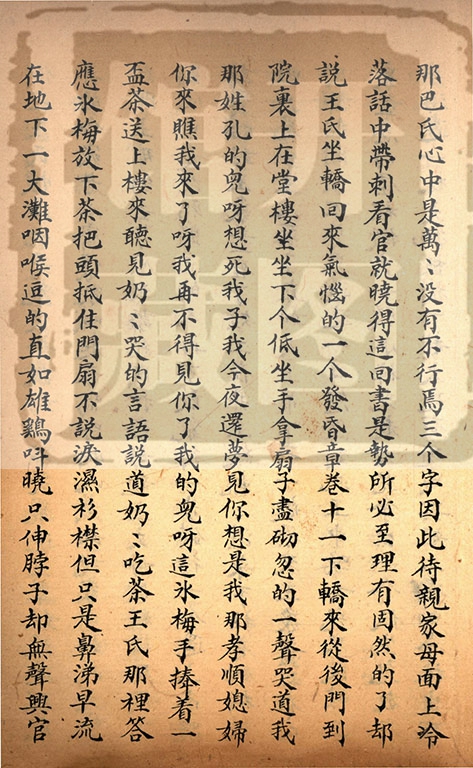 那巴氏心中是萬〻没有不行焉三个字因此待親家母面上冷
落話中帶刺看官就曉得這囬書是勢所必至理有固然的了却
說王氏坐轎囬來氣惱的一个發昏章卷十一下轎來從後門到
院裏上在堂樓坐坐下个低坐手拿扇子盡砌忽的一聲哭道我
那姓孔的兒呀想死我子我今夜還夢見你想是我那孝順媳婦
你來瞧我來了呀我再不得見你了我的兒呀這氷梅手捧着一
盃茶送上樓來聽見奶〻哭的言語說道奶〻吃茶王氏那裡答
應氷梅放下茶把頭抵住門扇不說淚濕衫襟但只是鼻涕早流
在地下一大灘咽喉逗的直如雄鷄呌曉只伸脖子却無聲興官